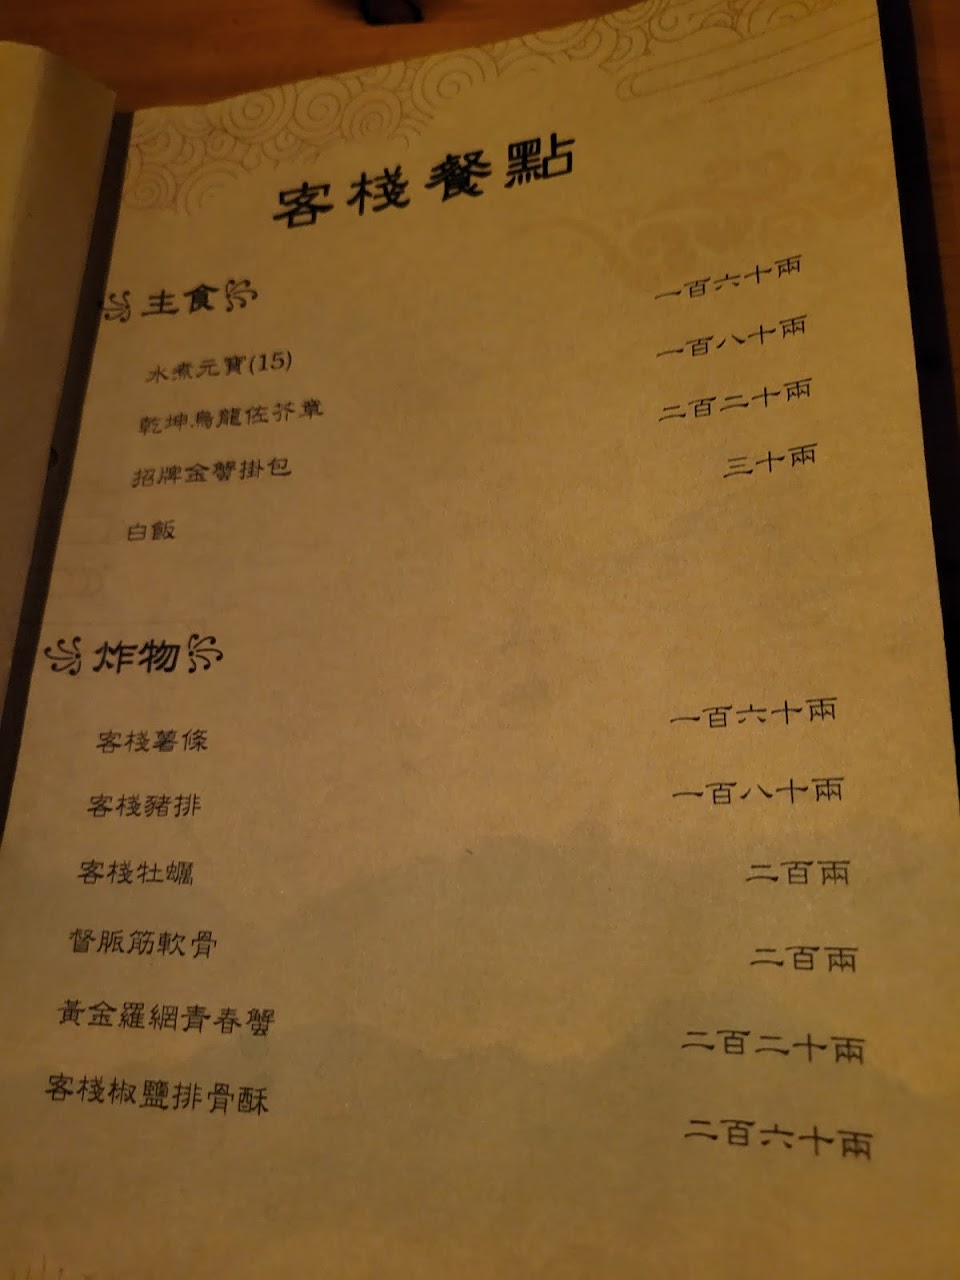 客棧餐點
主食
水煮元寶(15) 一百六十兩
乾坤烏龍佐芥章 一百八十兩
招牌金蟹掛包 二百二十兩
白飯 三十兩
炸物
客棧薯條 一百六十兩
客棧豬排 一百八十兩
客棧牡蠣 二百兩
督脈筋軟骨 二百兩
黃金羅網青春蟹 二百二十兩
客棧椒鹽排骨酥 二百六十兩